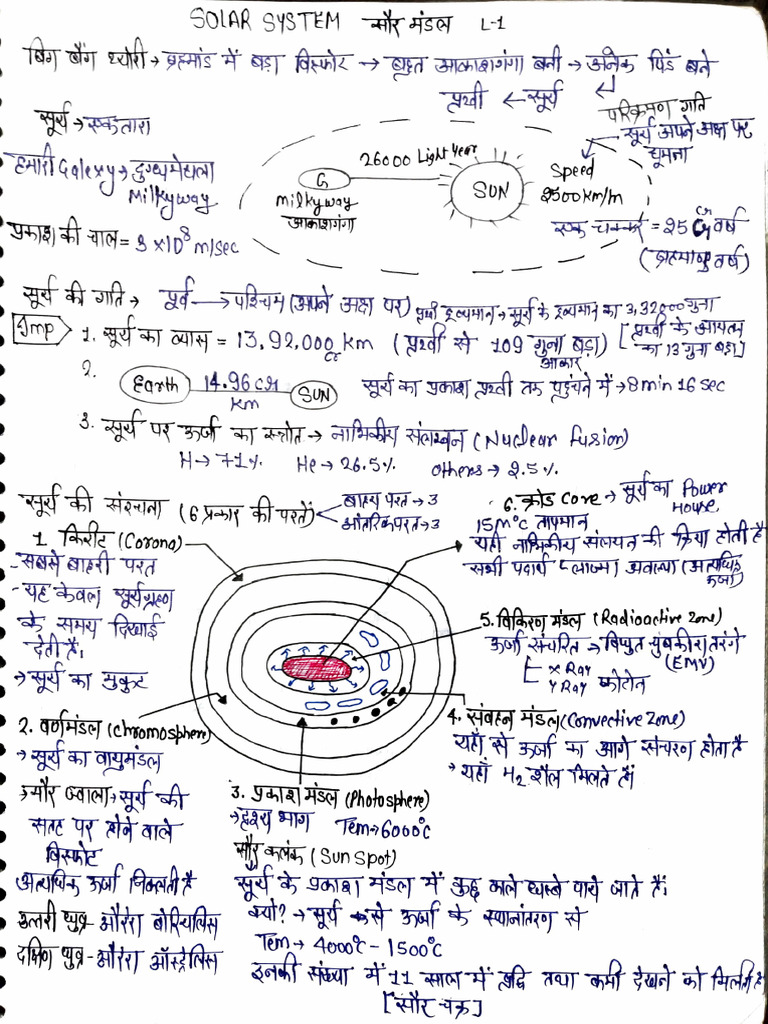 SOLAR SYSTEM सौर मंडल L-1
बिग बैंग थ्योरी → ब्रह्मांड में बड़ा विस्फोट → बहुत आकाशगंगा बनी → अनेक पिंड बने
पृथ्वी ← सूर्य
सूर्य → एक तारा
परिक्रमण गति
सूर्य अपने अक्ष पर घूमना
हमारी Galexy → दुग्धमेखला
Milkyway
26000 Light Year
G
milkyway
आकाशगंगा
SUN
Speed
2500 km/m
एक चक्कर = 25 Cr वर्ष
(ब्रह्माण्ड वर्ष)
प्रकाश की चाल = 3 × 10⁸ m/sec
सूर्य की गति → पूर्व → पश्चिम (अपने अक्ष पर)
पृथ्वी द्रव्यमान → सूर्य के द्रव्यमान का 3,32,000 गुना
Imp
1. सूर्य का व्यास = 13,92,000 km (पृथ्वी से 109 गुना बड़ा)
Cr
आकार
[पृथ्वी के आयतन
का 13 गुना बड़ा]
2. Earth 14.96 cr km SUN
सूर्य का प्रकाश पृथ्वी तक पहुंचने में → 8 min 16 sec
3. सूर्य पर ऊर्जा का स्त्रोत → नाभिकीय संलयन (Nuclear fusion)
H → 71% He → 26.5% others → 2.5%
सूर्य की संरचना (6 प्रकार की परतें)
बाह्य परत → 3
आंतरिक परत → 3
6. क्रोड core → सूर्य का Power
House
15M°C तापमान
यहाँ नाभिकीय संलयन की क्रिया होती है
सभी पदार्थ प्लाज्मा अवस्था (अत्यधिक
ऊर्जा)
1. किरीट (Corona)
- सबसे बाहरी परत
- यह केवल सूर्यग्रहण
के समय दिखाई
देती है।
→ सूर्य का मुकुट
5. विकिरण मंडल (Radioactive Zone)
ऊर्जा संचरित → विधुत चुंबकीय तरंगे
(EMV)
X Ray
γ Ray फोटोन
4. संवहन मंडल (Convective Zone)
यहाँ से ऊर्जा का आगे संचरण होता है
→ यहाँ H₂ शैल मिलते हैं।
2. वर्णमंडल (chromosphere)
→ सूर्य का वायुमंडल
→ सौर ज्वाला → सूर्य की
सतह पर होने वाले
विस्फोट
अत्यधिक ऊर्जा निकलती है
उत्तरी ध्रुव - औरोरा बोरियलिस
दक्षिण ध्रुव - औरोरा ऑस्ट्रेलिस
3. प्रकाश मंडल (Photosphere)
→ दृश्य भाग Tem → 6000°C
सौर कलंक (Sun Spot)
सूर्य के प्रकाश मंडल में कुछ काले धब्बे पाये जाते हैं।
क्यों? → सूर्य से ऊर्जा के स्थानांतरण से
Tem → 4000°C - 1500°C
इनकी संख्या में 11 साल में वृद्धि तथा कमी देखने को मिलती है
[सौर चक्र]